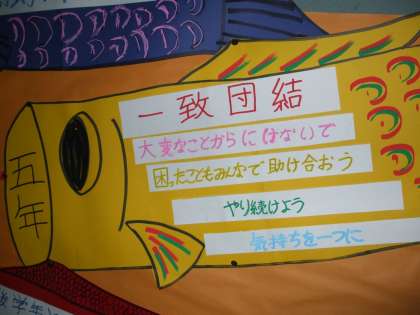 五年
一致団結
大変なことからにげないで
困ったこともみんなで助け合おう
やり続けよう
気持ちを一つに